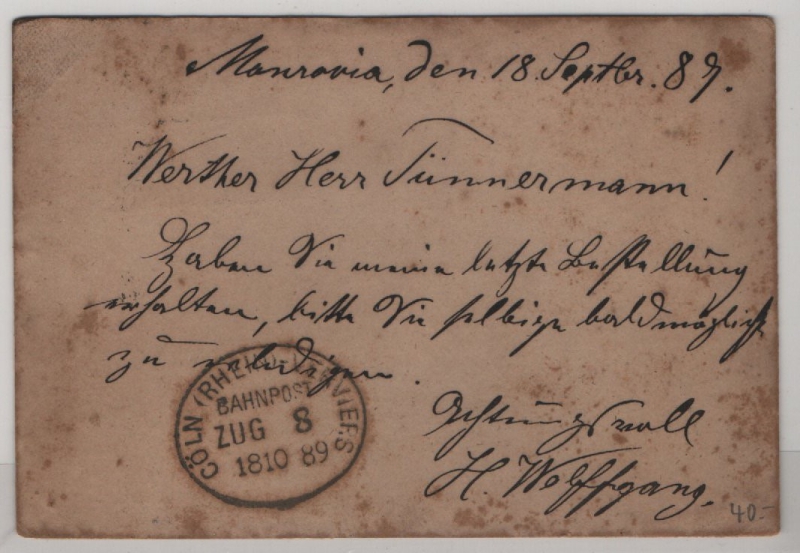 Monrovia, den 18. Septbr. 89.
Werther Herr Tünnermann!
Haben Sie meine letzte Bestellung
erhalten, bitte Sie selbige baldmöglichst
zu erledigen.
Achtungsvoll
H. Wolffgang.
CÖLN (RHEIN) VERVIERS
BAHNPOST
ZUG 8
18 10 89
40.-